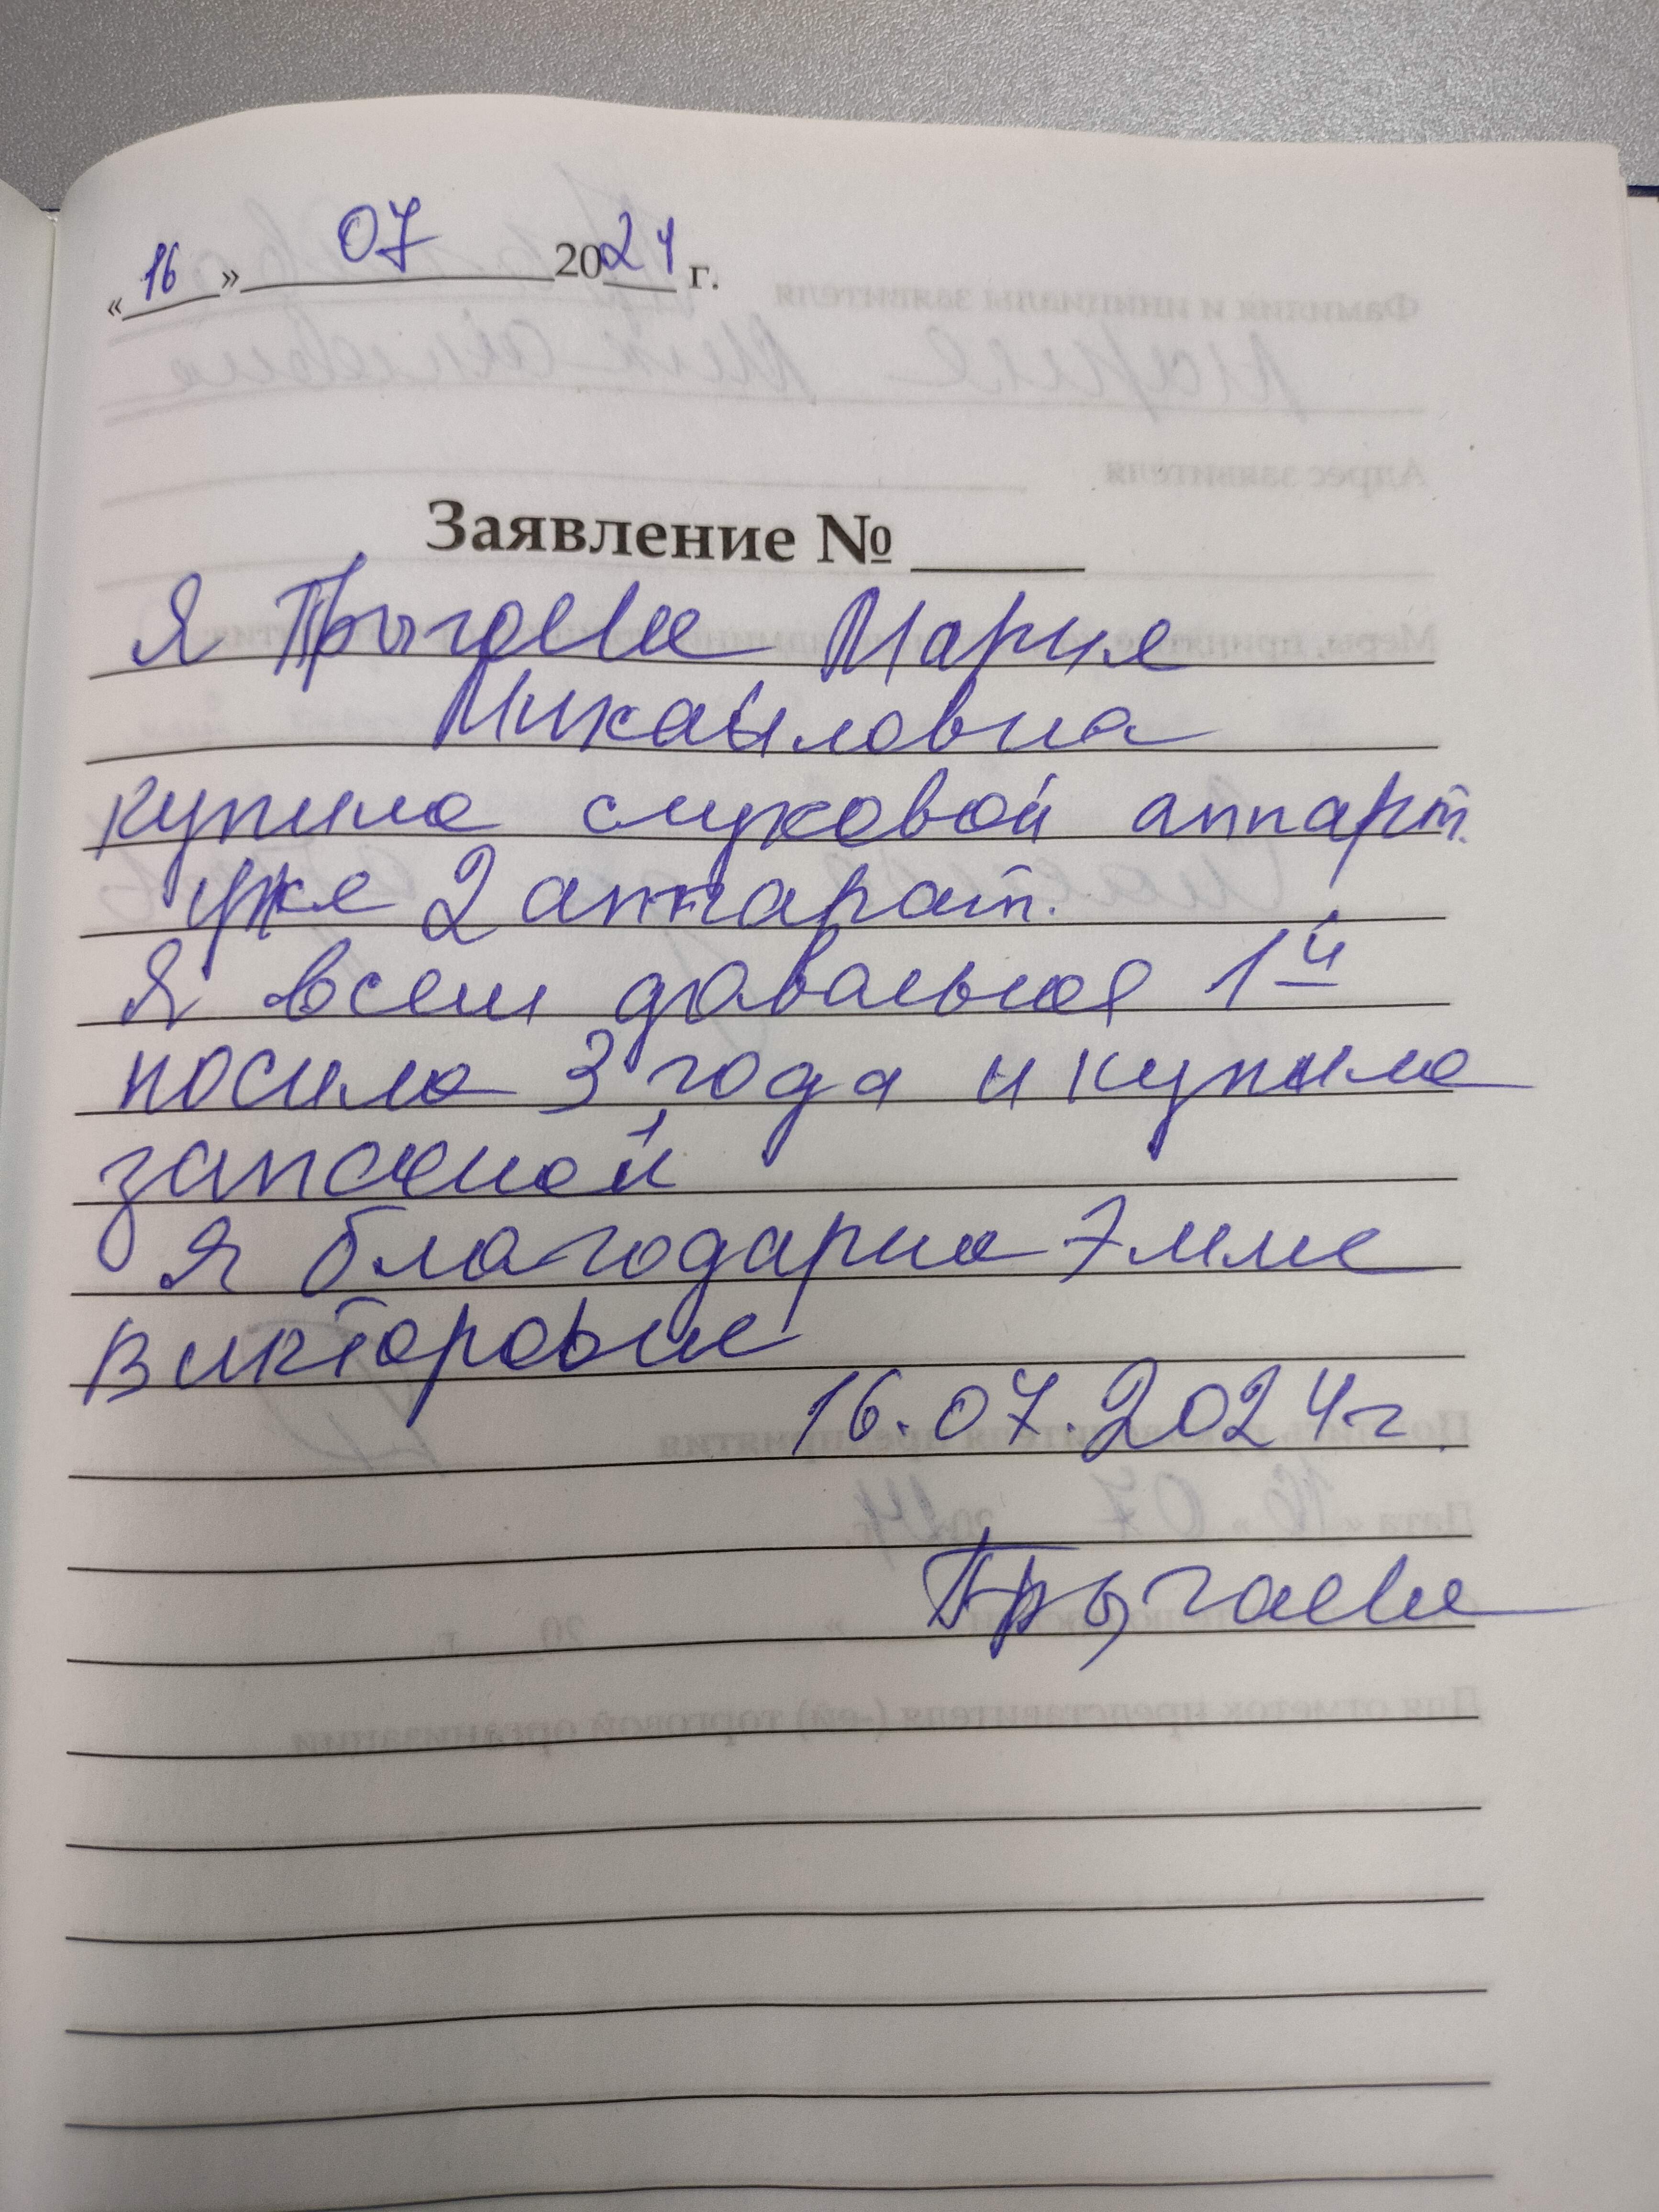 «16» 07 2024 г.
Заявление №
Я Прыгаева Мария
Микаыловна
купила слуховой аппарт.
уже 2 аппарат.
Я всем довальная 1й
носила 3 года и купила
запасной
Я благодарна Эмме
Викторовне
16.07.2024г.
Прыгаева